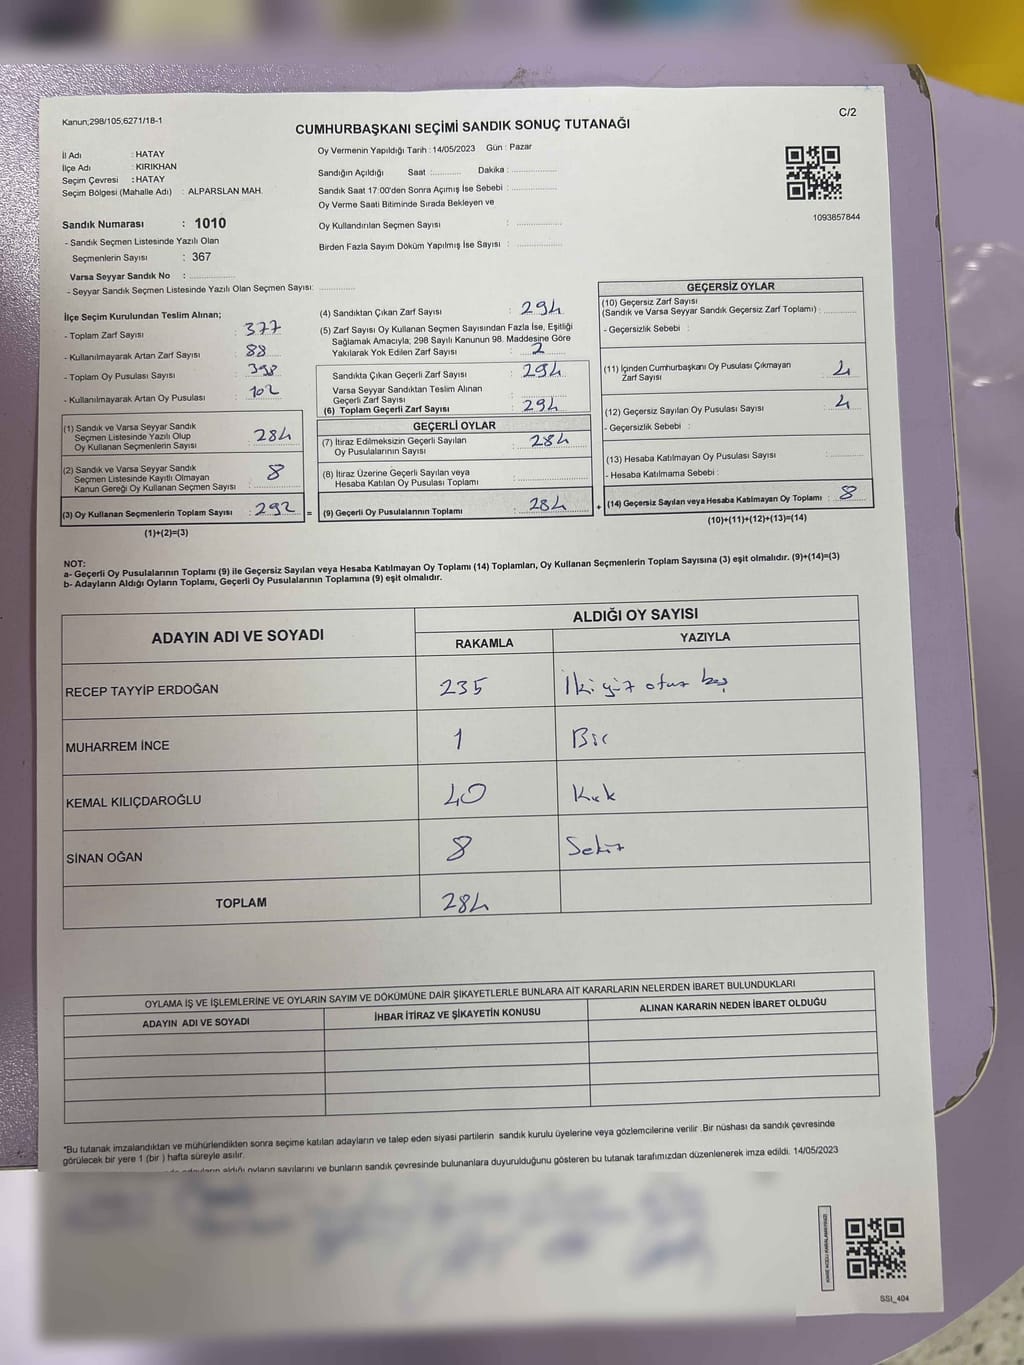 Kanun;298/105;6271/18-1
C/2
CUMHURBAŞKANI SEÇİMİ SANDIK SONUÇ TUTANAĞI
İl Adı : HATAY
İlçe Adı : KIRIKHAN
Seçim Çevresi : HATAY
Seçim Bölgesi (Mahalle Adı) : ALPARSLAN MAH.
Oy Vermenin Yapıldığı Tarih : 14/05/2023 Gün : Pazar
Sandığın Açıldığı Saat :........... Dakika :................
Sandık Saat 17:00'den Sonra Açımış İse Sebebi :................
Oy Verme Saati Bitiminde Sırada Bekleyen ve
Oy Kullandırılan Seçmen Sayısı : ................
Birden Fazla Sayım Döküm Yapılmış İse Sayısı : ................
1093857844
Sandık Numarası : 1010
- Sandık Seçmen Listesinde Yazılı Olan
Seçmenlerin Sayısı : 367
Varsa Seyyar Sandık No : ................
- Seyyar Sandık Seçmen Listesinde Yazılı Olan Seçmen Sayısı: ............
İlçe Seçim Kurulundan Teslim Alınan;
- Toplam Zarf Sayısı : 377
- Kullanılmayarak Artan Zarf Sayısı : 88
- Toplam Oy Pusulası Sayısı :
- Kullanılmayarak Artan Oy Pusulası : 102
(1) Sandık ve Varsa Seyyar Sandık
Seçmen Listesinde Yazılı Olup
Oy Kullanan Seçmenlerin Sayısı : 284
(2) Sandık ve Varsa Seyyar Sandık
Seçmen Listesinde Kayıtlı Olmayan
Kanun Gereği Oy Kullanan Seçmen Sayısı : 8
(3) Oy Kullanan Seçmenlerin Toplam Sayısı : 292 =
(1)+(2)=(3)
(4) Sandıktan Çıkan Zarf Sayısı : 294
(5) Zarf Sayısı Oy Kullanan Seçmen Sayısından Fazla İse, Eşitliği
Sağlamak Amacıyla, 298 Sayılı Kanunun 98. Maddesine Göre
Yakılarak Yok Edilen Zarf Sayısı : 2
Sandıkta Çıkan Geçerli Zarf Sayısı : 294
Varsa Seyyar Sandıktan Teslim Alınan
Geçerli Zarf Sayısı
(6) Toplam Geçerli Zarf Sayısı : 294
GEÇERLİ OYLAR
(7) İtiraz Edilmeksizin Geçerli Sayılan
Oy Pusulalarının Sayısı : 284
(8) İtiraz Üzerine Geçerli Sayılan veya
Hesaba Katılan Oy Pusulası Toplamı :
(9) Geçerli Oy Pusulalarının Toplamı : 284 +
GEÇERSİZ OYLAR
(10) Geçersiz Zarf Sayısı
(Sandık ve Varsa Seyyar Sandık Geçersiz Zarf Toplamı) : ............
- Geçersizlik Sebebi :
(11) İçinden Cumhurbaşkanı Oy Pusulası Çıkmayan
Zarf Sayısı : 4
(12) Geçersiz Sayılan Oy Pusulası Sayısı : 4
- Geçersizlik Sebebi :
(13) Hesaba Katılmayan Oy Pusulası Sayısı : ............
- Hesaba Katılmama Sebebi :
(14) Geçersiz Sayılan veya Hesaba Katılmayan Oy Toplamı : 8
(10)+(11)+(12)+(13)=(14)
NOT:
a- Geçerli Oy Pusulalarının Toplamı (9) ile Geçersiz Sayılan veya Hesaba Katılmayan Oy Toplamı (14) Toplamları, Oy Kullanan Seçmenlerin Toplam Sayısına (3) eşit olmalıdır. (9)+(14)=(3)
b- Adayların Aldığı Oyların Toplamı, Geçerli Oy Pusulalarının Toplamına (9) eşit olmalıdır.
ADAYIN ADI VE SOYADI
ALDIĞI OY SAYISI
RAKAMLA YAZIYLA
RECEP TAYYİP ERDOĞAN 235 İki yüz otuz beş
MUHARREM İNCE 1 Bir
KEMAL KILIÇDAROĞLU 40 Kırk
SİNAN OĞAN 8 Sekiz
TOPLAM 284
OYLAMA İŞ VE İŞLEMLERİNE VE OYLARIN SAYIM VE DÖKÜMÜNE DAİR ŞİKAYETLERLE BUNLARA AİT KARARLARIN NELERDEN İBARET BULUNDUKLARI
ADAYIN ADI VE SOYADI İHBAR İTİRAZ VE ŞİKAYETİN KONUSU ALINAN KARARIN NEDEN İBARET OLDUĞU
*Bu tutanak imzalandıktan ve mühürlendikten sonra seçime katılan adayların ve talep eden siyasi partilerin sandık kurulu üyelerine veya gözlemcilerine verilir .Bir nüshası da sandık çevresinde
görülecek bir yere 1 (bir ) hafta süreyle asılır.
adayların aldığı oyların sayılarını ve bunların sandık çevresinde bulunanlara duyurulduğunu gösteren bu tutanak tarafımızdan düzenlenerek imza edildi. 14/05/2023
SSI_404